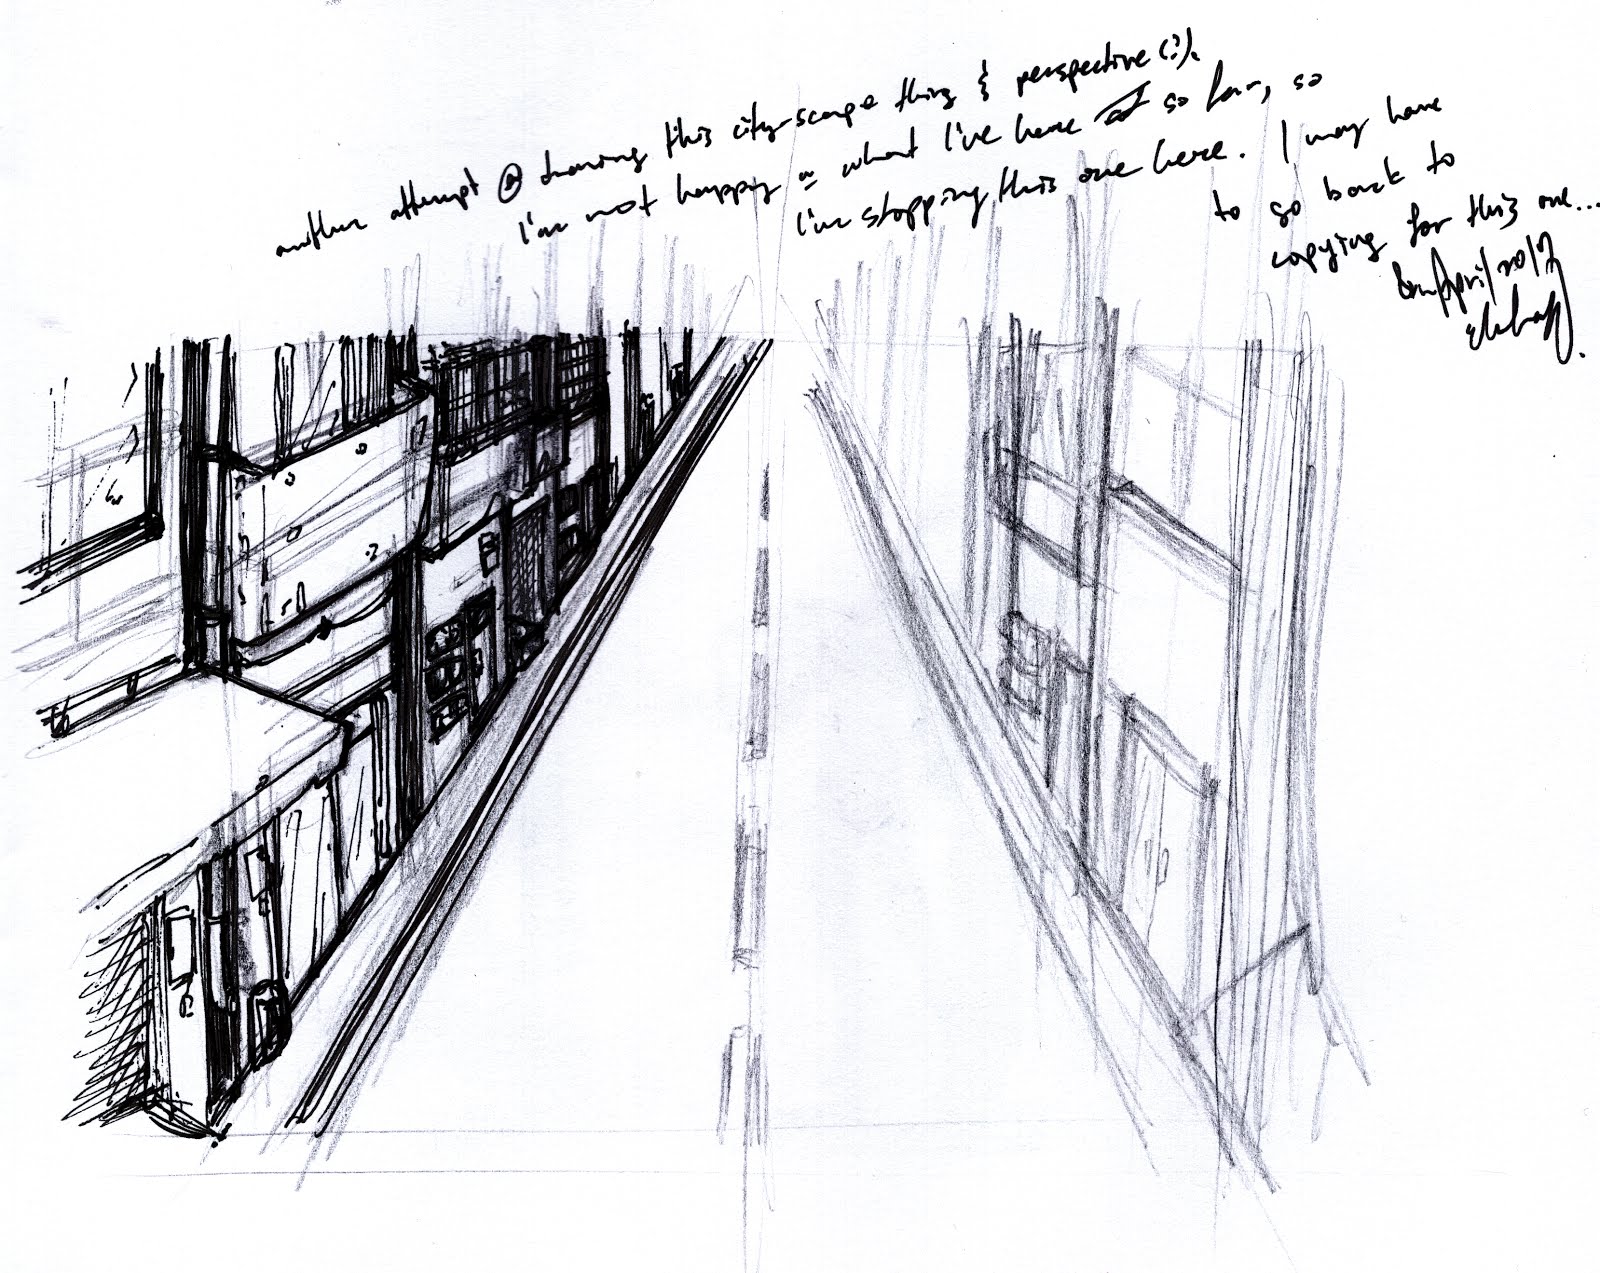 another attempt @ drawing this city-scape thing & perspective(?).
I'm not happy w what I've have so far, so
I'm stopping this one here. I may have
to go back to
copying for this one...
April/2017